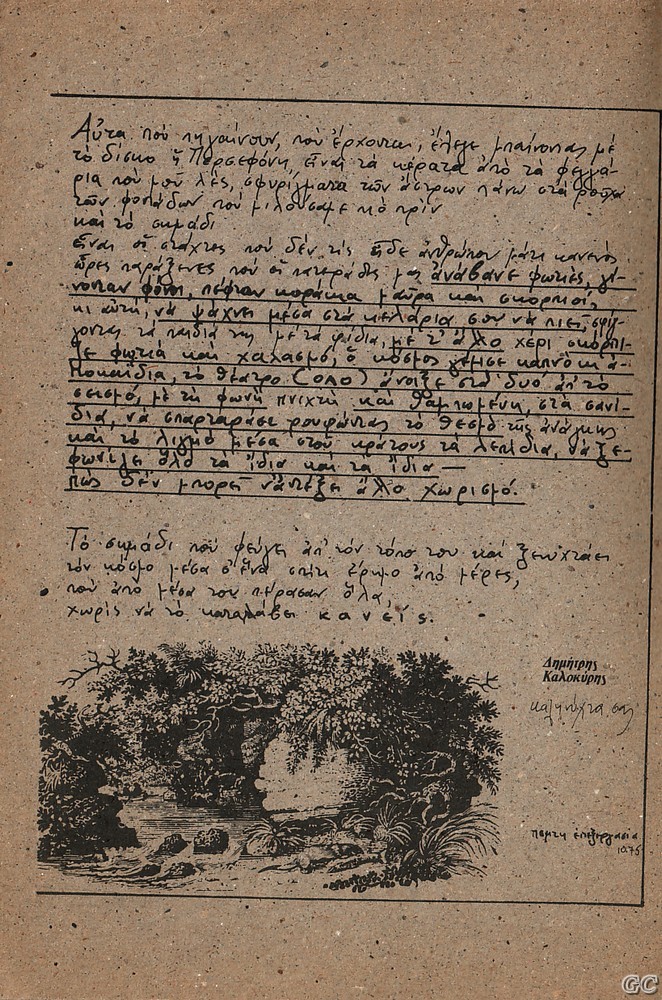 Αὐτα ποὺ πηγαίνουν, ποὺ ἔρχονται, ἔλεγε μπαίνοντας μὲ
τὸ δίσκο ἡ Περσεφόνη, εἶναι τὰ κέρατα ἀπὸ τὰ φεγγά-
ρια ποὺ μοῦ λές, σφυρίγματα τῶν ἄστρων πάνω στὰ ροῦχα
τῶν φονιάδων ποὺ μιλούσαμε πιὸ πρίν
καὶ τὸ σημάδι
εἶναι οἱ στάχτες ποὺ δὲν τὶς εἶδε ἀνθρώπου μάτι κανενὸς
ὧρες παράξενες ποὺ οἱ πατεράδες μας ἀνάβανε φωτιές, γί-
νονταν φόνοι, πέφταν κοράκια μαῦρα καὶ σκορπιοί,
κι αὐτή, νὰ ψάχνει μέσα στὰ κελάρια σου νὰ πιεῖ,
τὰ παιδιά της μὲ τὰ φίδια, μὲ τ' ἄλλο χέρι σκορπί-
ζε φωτιὰ καὶ χαλασμό, ὁ κόσμος γέμισε καπνὸ κι ἀ-
ποκαΐδια, τὸ θέατρο (ὅλο) ἄνοιξε στὰ δυὸ ἀπ' τὸ
σεισμό, μὲ τὴ φωνὴ πνιχτὴ καὶ θαμπωμένη, στὰ σανί-
δια, νὰ σπαρταράει ρουφώντας τὸ θεσμὸ τῆς ἀνάγκης
καὶ τὸ λιγμὸ μέσα στοῦ κράτους τὰ λεπίδια, νὰ ξε-
φωνίζει ὅλο τὰ ἴδια καὶ τὰ ἴδια —
πὼς δὲν μπορεῖ ν' ἀντέξει ἄλλο χωρισμό.
Τὸ σημάδι ποὺ φεύγει ἀπ' τὸν τόπο του καὶ ξενυχτάει
τὸν κόσμο μέσα σ' ἕνα σπίτι ἔρημο ἀπὸ μέρες,
ποὺ ἀπὸ μέσα του πέρασαν ὅλα,
χωρὶς νὰ τὸ καταλάβει κ α ν ε ί ς.
Δημήτρης
Καλοκύρης
καληνύχτα σας
πέμπτη ἐπεξεργασία
1975
GC